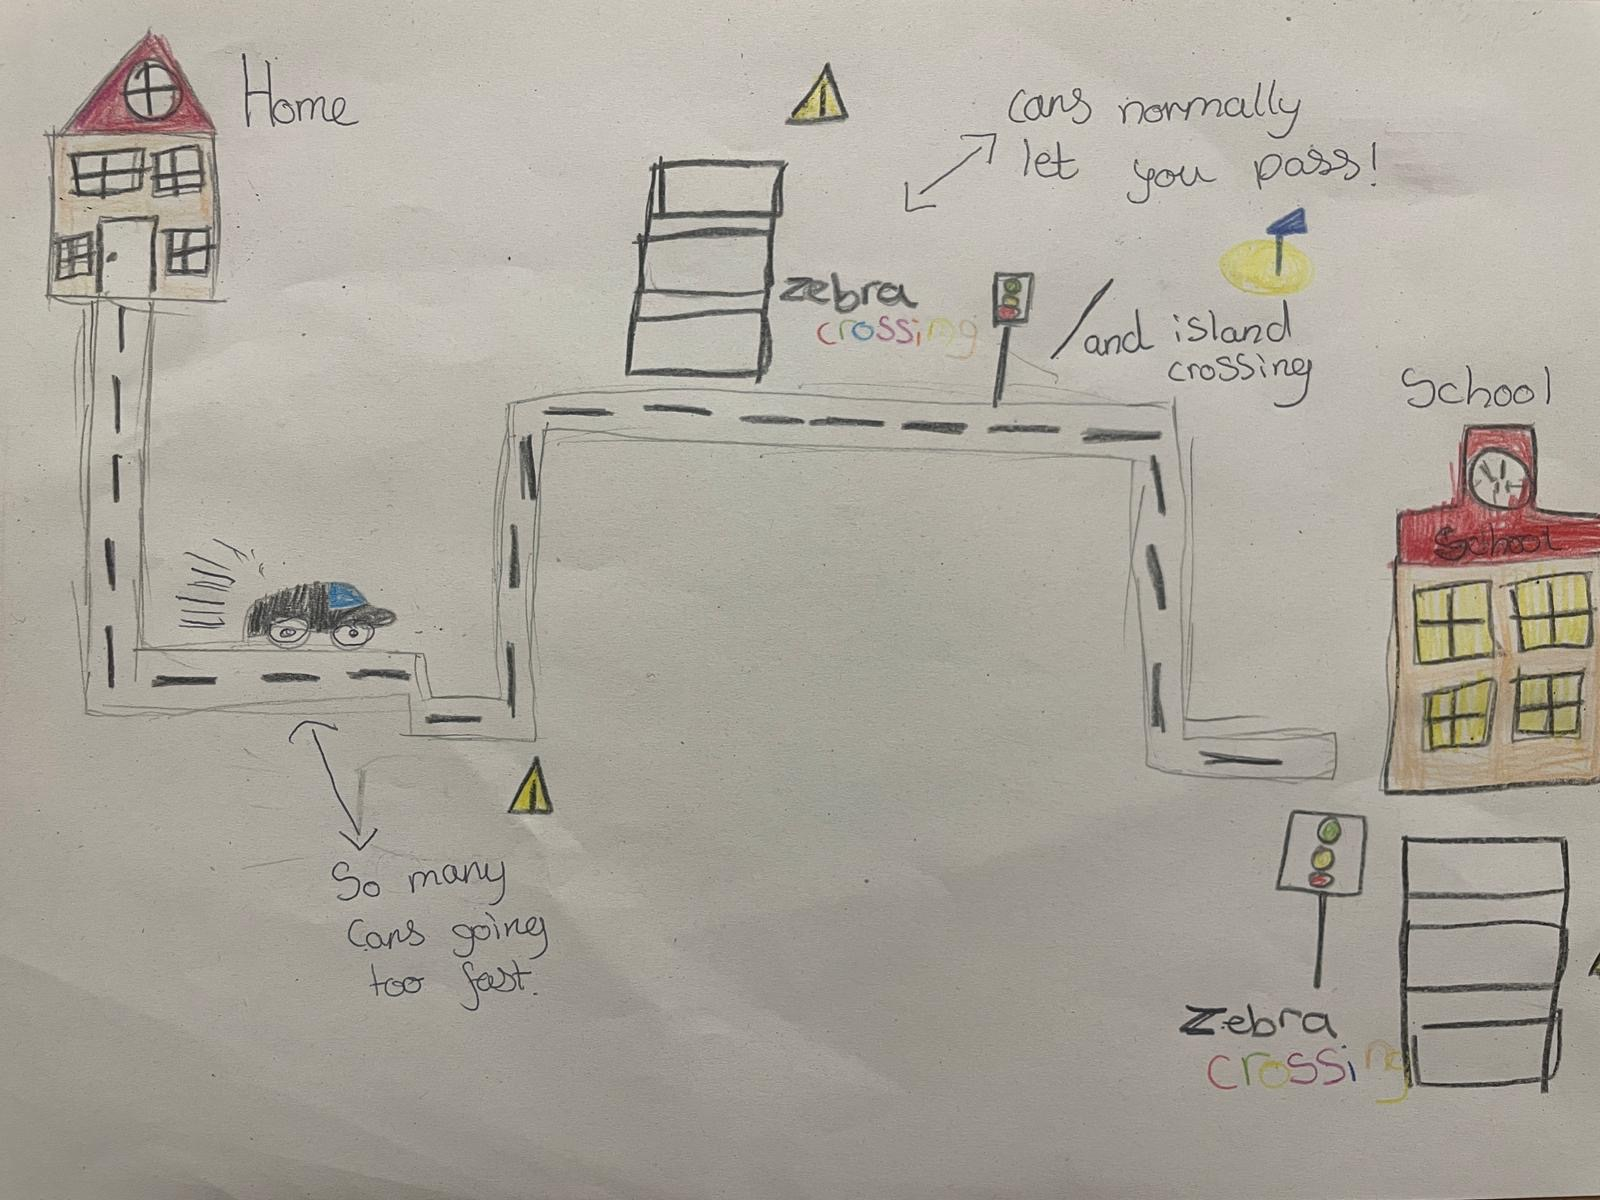 Home
cars normally
let you pass!
zebra
crossing
/and island
crossing
School
School
So many
cars going
too fast.
Zebra
crossing